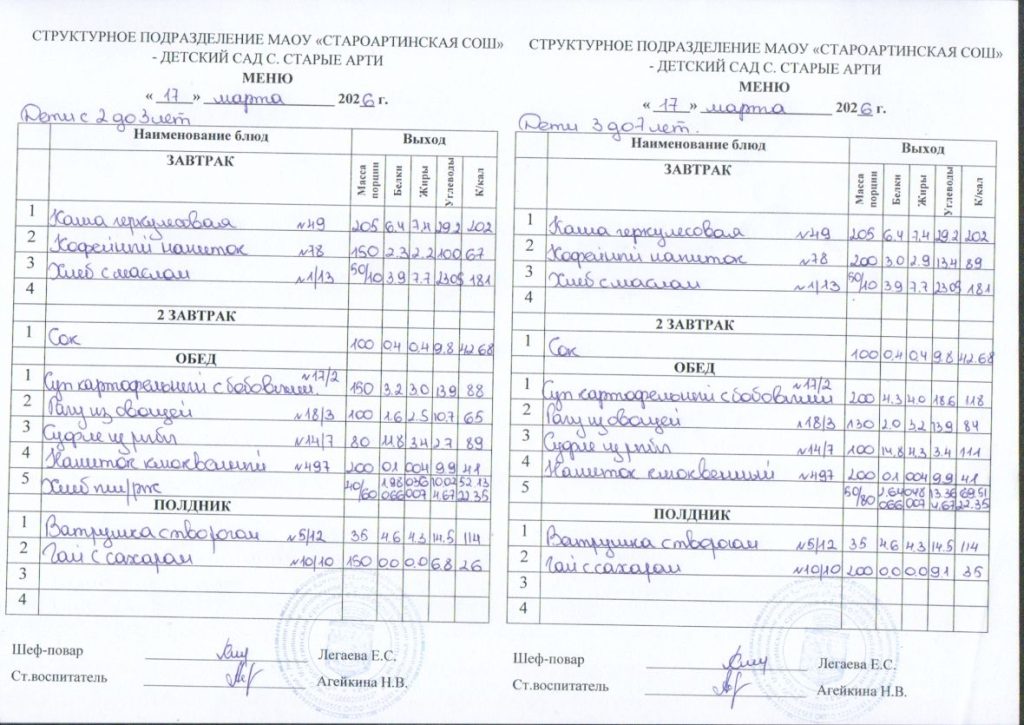 СТРУКТУРНОЕ ПОДРАЗДЕЛЕНИЕ МАОУ «СТАРОАРТИНСКАЯ СОШ»
- ДЕТСКИЙ САД С. СТАРЫЕ АРТИ
МЕНЮ
« 17 » марта 2026 г.
Дети с 2 до 3 лет
Наименование блюд Выход
ЗАВТРАК Масса порции Белки Жиры Углеводы К/кал
1 Каша геркулесовая №49 205 6.4 7.4 29.2 202
2 Кофейный напиток №78 150 2.3 2.2 10.0 67
3 Хлеб с маслом №1/13 50/10 3.9 7.7 23.05 181
4
2 ЗАВТРАК
1 Сок 100 0.4 0.4 9.8 42.68
ОБЕД
1 Суп картофельный с бобовыми. №17/2 150 3.2 3.0 13.9 88
2 Рагу из овощей №18/3 100 1.6 2.5 10.7 65
3 Суфле из рыбы №14/7 80 11.8 3.4 2.7 89
4 Напиток клюквенный №497 200 0.1 0.04 9.9 41
5 Хлеб пш/рж 40/60 1.98 0.36 10.02 52.13
0.66 0.07 4.67 22.35
ПОЛДНИК
1 Ватрушка с творогом №5/12 35 4.6 4.3 14.5 114
2 Чай с сахаром №10/10 150 0.0 0.0 6.8 26
3
4
Шеф-повар Легаева Е.С.
Ст.воспитатель Агейкина Н.В.
СТРУКТУРНОЕ ПОДРАЗДЕЛЕНИЕ МАОУ «СТАРОАРТИНСКАЯ СОШ»
- ДЕТСКИЙ САД С. СТАРЫЕ АРТИ
МЕНЮ
« 17 » марта 2026 г.
Дети 3 до 7 лет.
Наименование блюд Выход
ЗАВТРАК Масса порции Белки Жиры Углеводы К/кал
1 Каша геркулесовая №49 205 6.4 7.4 29.2 202
2 Кофейный напиток №78 200 3.0 2.9 13.4 89
3 Хлеб с маслом №1/13 50/10 3.9 7.7 23.05 181
4
2 ЗАВТРАК
1 Сок 100 0.4 0.4 9.8 42.68
ОБЕД
1 Суп картофельный с бобовыми №17/2 200 4.3 4.0 18.6 118
2 Рагу из овощей №18/3 130 2.0 3.2 13.9 84
3 Суфле из рыбы №14/7 100 14.8 4.3 3.4 111
4 Напиток клюквенный №497 200 0.1 0.04 9.9 41
5 50/80 2.64 0.48 13.36 69.51
0.66 0.07 4.67 22.35
ПОЛДНИК
1 Ватрушка с творогом №5/12 35 4.6 4.3 14.5 114
2 Чай с сахаром №10/10 200 0.0 0.0 9.1 35
3
4
Шеф-повар Легаева Е.С.
Ст.воспитатель Агейкина Н.В.